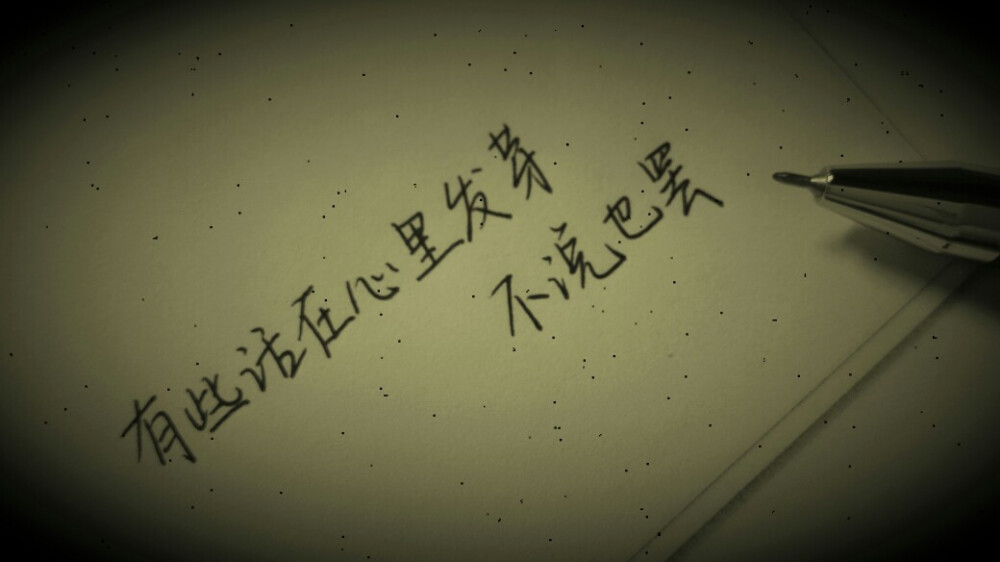 有些话在心里发芽
不说也罢